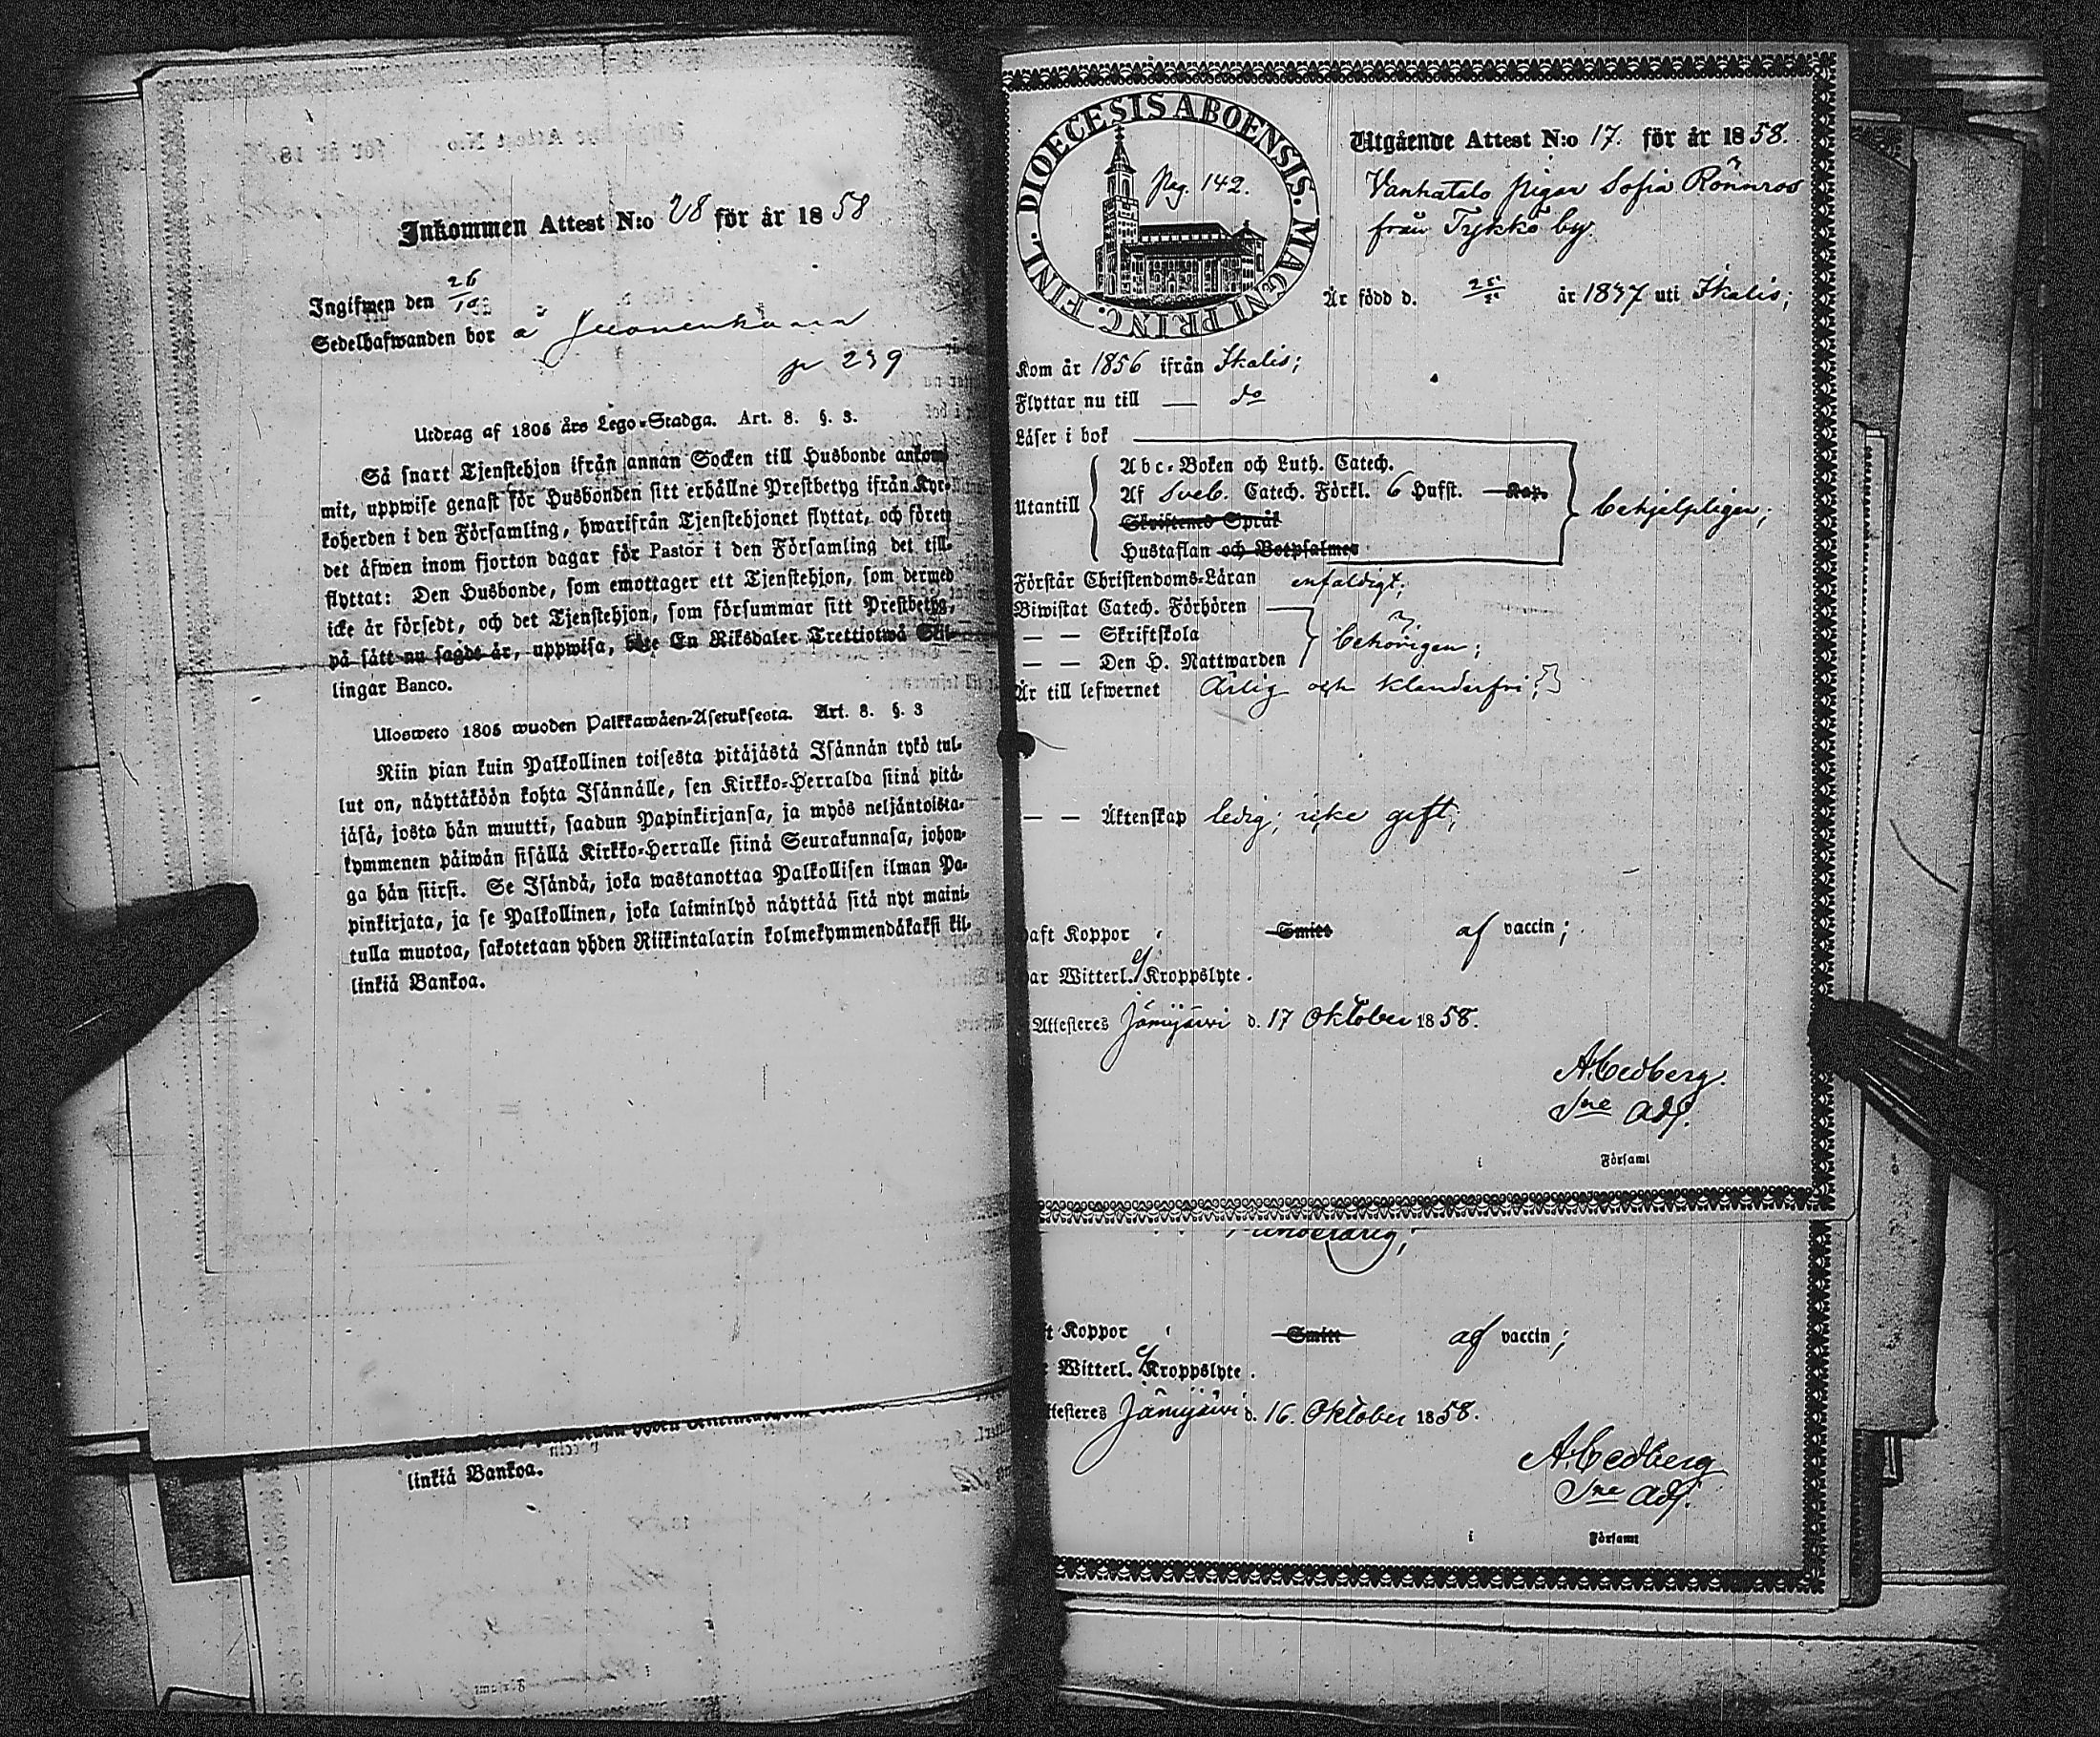 Inkommen Attest N:o 28 för år 1858
Ingifwen den 26/10
Sedelhafwanden bor å
p 239
Utdrag af 1805 års Lego-Stadga. Art. 8. §. 3.
Så snart Tjenstehjon ifrån annan Socken till Husbonde ankom-
mit, uppwise genast för Husbonden sitt erhållne Prestbetyg ifrån Kyr-
koherden i den Församling, hwarifrån Tjenstehjonet flyttat, och förete
det äfwen inom fjorton dagar för Pastor i den Församling det till-
flyttat: Den Husbonde, som emottager ett Tjenstehjon, som dermed
icke är försedt, och det Tjenstehjon, som försummar sitt Prestbetyg,
på sätt nu sagdt är, uppwisa, böte En Riksdaler Trettiotwå Skil-
lingar Banco.
Ulosweto 1805 wuoden Palkkawäen-Asetuksesta. Art. 8. §. 3
Niin pian kuin Palkollinen toisesta pitäjästä Isännän tykö tul-
lut on, näyttäköön kohta Isännälle, sen Kirkko-Herralda siinä pitä-
jäsä, josta hän muutti, saadun Papinkirjansa, ja myös neljäntoista-
kymmenen päiwän sisällä Kirkko-Herralle siinä Seurakunnasa, johon-
ga hän siirsi. Se Isändä, joka wastanottaa Palkollisen ilman Pa-
pinkirjata, ja se Palkollinen, joka laiminlyö näyttää sitä nyt maini-
tulla muotoa, sakotetaan yhden Riikintalarin kolmekymmendäkaksi kil-
linkiä Bankoa.
linkiä Bankoa.
DIOECESIS ABOENSIS. MAGNI PRINC. FINL.
Pag. 142.
Utgående Attest N:o 17. för år 1858.
Vanhatalo pigan Sofia Rönnros
från Tykkö by.
Är född d. 25/5 år 1837 uti Ikalis;
Kom år 1856 ifrån Ikalis;
Flyttar nu till — do
Läser i bok
Utantill
Abc-Boken och Luth. Catech.
Af Sveb. Catech. Förkl. 6 Hufst. Kap.
Skriftenes Språk
Hustaflan och Botpsalmer
behjelpligen;
Förstår Christendoms-Läran enfaldigt;
Biwistat Catech. Förhören
— — Skriftskola
— — Den H. Nattwarden
behörigen;
Är till lefwernet Ärlig och klanderfri;
— — Äktenskap ledig; icke gift;
haft Koppor Smitt af vaccin;
har Witterl. ej Kroppslyte.
Attesteres Jämijärvi d. 17 Oktober 1858.
A. Cedberg.
Sne Adj.
i Församl
ft Koppor Smitt af vaccin;
Witterl. ej Kroppslyte.
ttesteres Jämijärvi d. 16. Oktober 1858.
A. Cedberg
Sne Adj.
i Församl